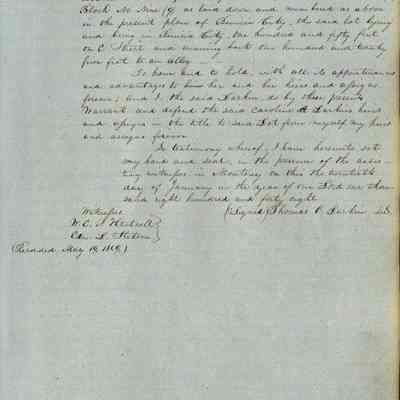 Block No Nine (9) as laid down and numbered as above
in the present plan of Benicia City, the said lot lying
and being in Benicia City, One hundred and fifty feet
on C Street and running back One hundred and twenty
five feet to an alley
To have and to hold, with all its appurtenances
and advantages to have her and her heirs and assigns
forever; and I, the said Larkin, do by these presents
Warrant and defend the said Caroline A. Larkin heirs
and assigns in the title to said Lot from myself my heirs
and assigns forever
In testimony whereof, I have hereunto set
my hand and seal, in the presence of the attes-
ting witnesses in Monterey on this the twentieth
day of January in the year of our Lord one thou-
sand eight hundred and forty eight
Witnesses (Signed) Thomas O. Larkin
W. C.
Recorded May 19, 184